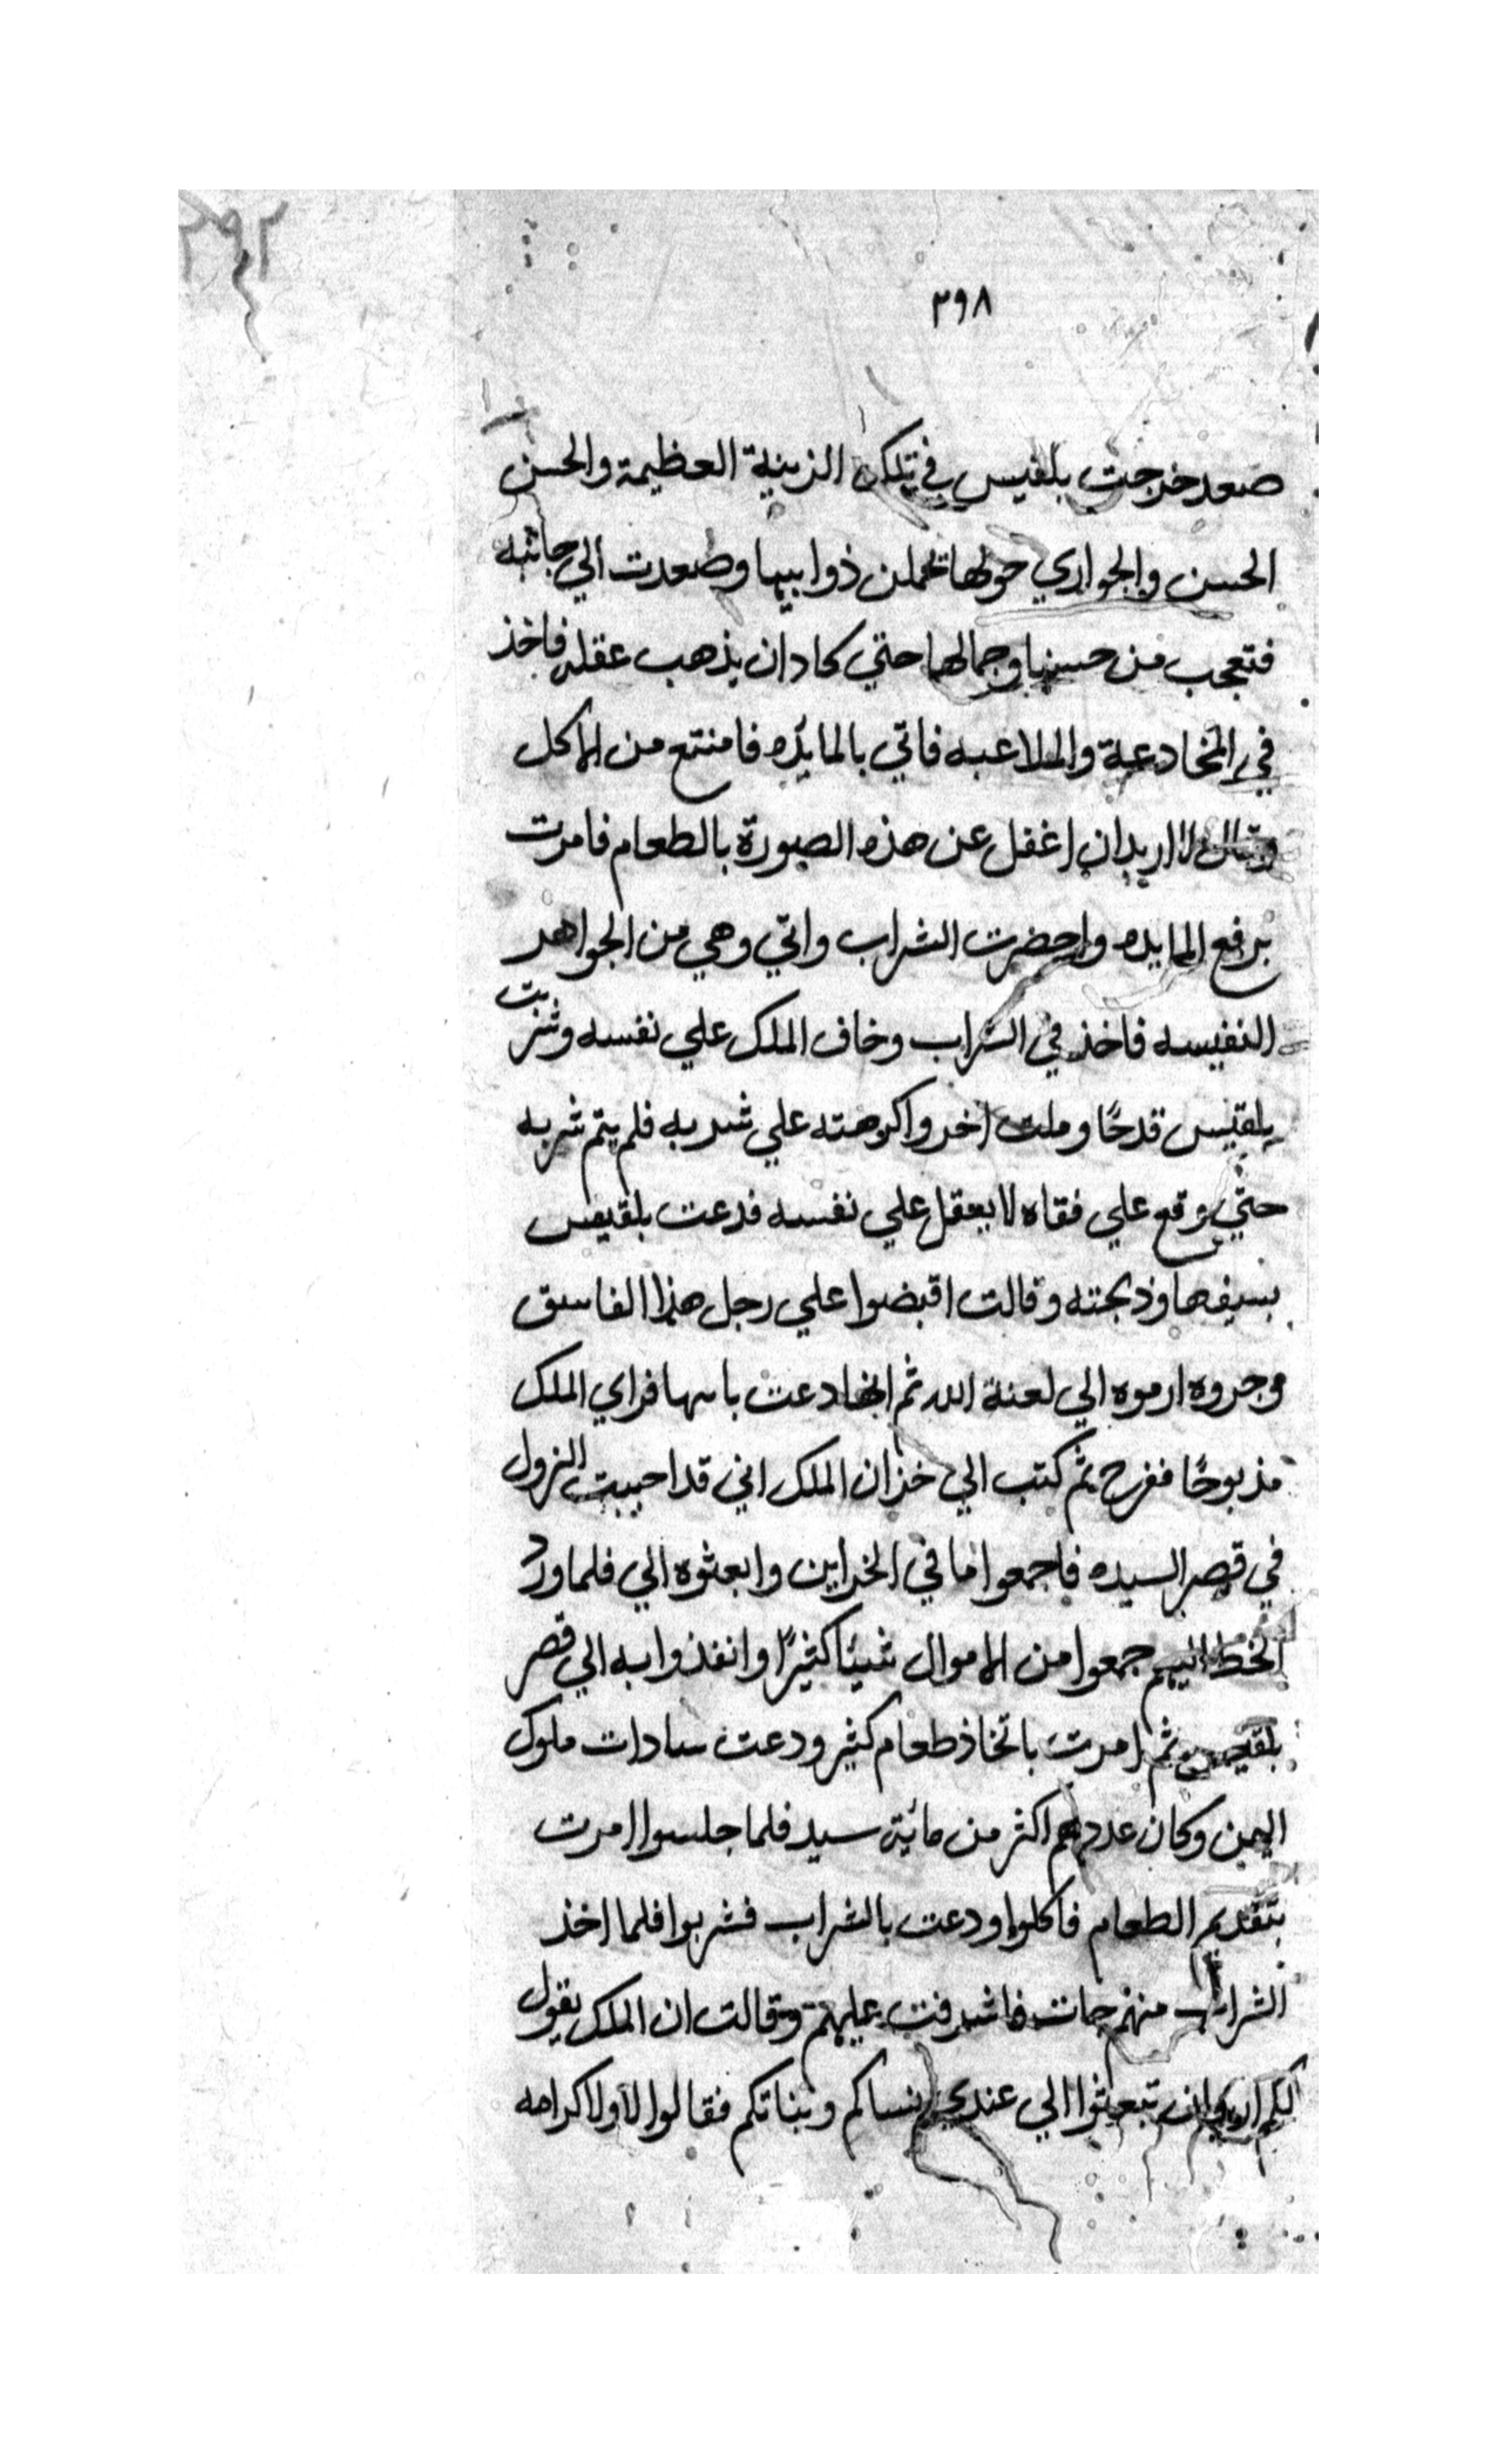 ٢٩٢
٣٩٨
صعد خرجت بلقيس في تلك الزينة العظيمة والحسن
الحسن والجواري حولها تحملن ذوابيها وصعدت الي جانبه
فتعجب من حسنها وجمالها حتي كادان يذهب عقله فاخذ
في المخادعة والملاعبه فاتي بالمايده فامنتع من الاكل
وقال لا اريدان اغفل عن هذه الصورة بالطعام فامرت
برفع المايده واحضرت الشراب واتي وهي من الجواهر
النفيسه فاخذ في الشراب وخاف الملك علي نفسه وشربت
بلقيس قدحًا وملت اخر واكرهته علي شربه فلم يتم شربه
حتي وقع علي فقاه لا يعقل علي نفسه فدعت بلقيس
بسيفها وذبحته وقالت اقبضوا علي رجل هذا الفاسق
وجروه ارموه الي لعنة الله ثم انها دعت بابيها فراي الملك
مذبوحًا ففرح ثم كتب الي خزان الملك اني قد احببت النزول
في قصر السيده فاجمعوا ما في الخزاين وابعثوه الي فلما ورد
الخط اليهم جمعوا من الاموال شيئا كثيرًا وانفذوا به الي قصر
بلقيس ثم امرت باتخاذ طعام كثير ودعت سادات ملوك
اليمن وكان عددهم اكثر من مائية سيد فلما جلسوا امرت
بتقديم الطعام فاكلوا ودعت بالشراب فشربوا فلما اخذ
الشراب منهم جات فاشرفت عليهم وقالت ان الملك يقول
لكم اريد ان تبعثوا الي عندي نساكم وبناتكم فقالوا لا ولا كرامه